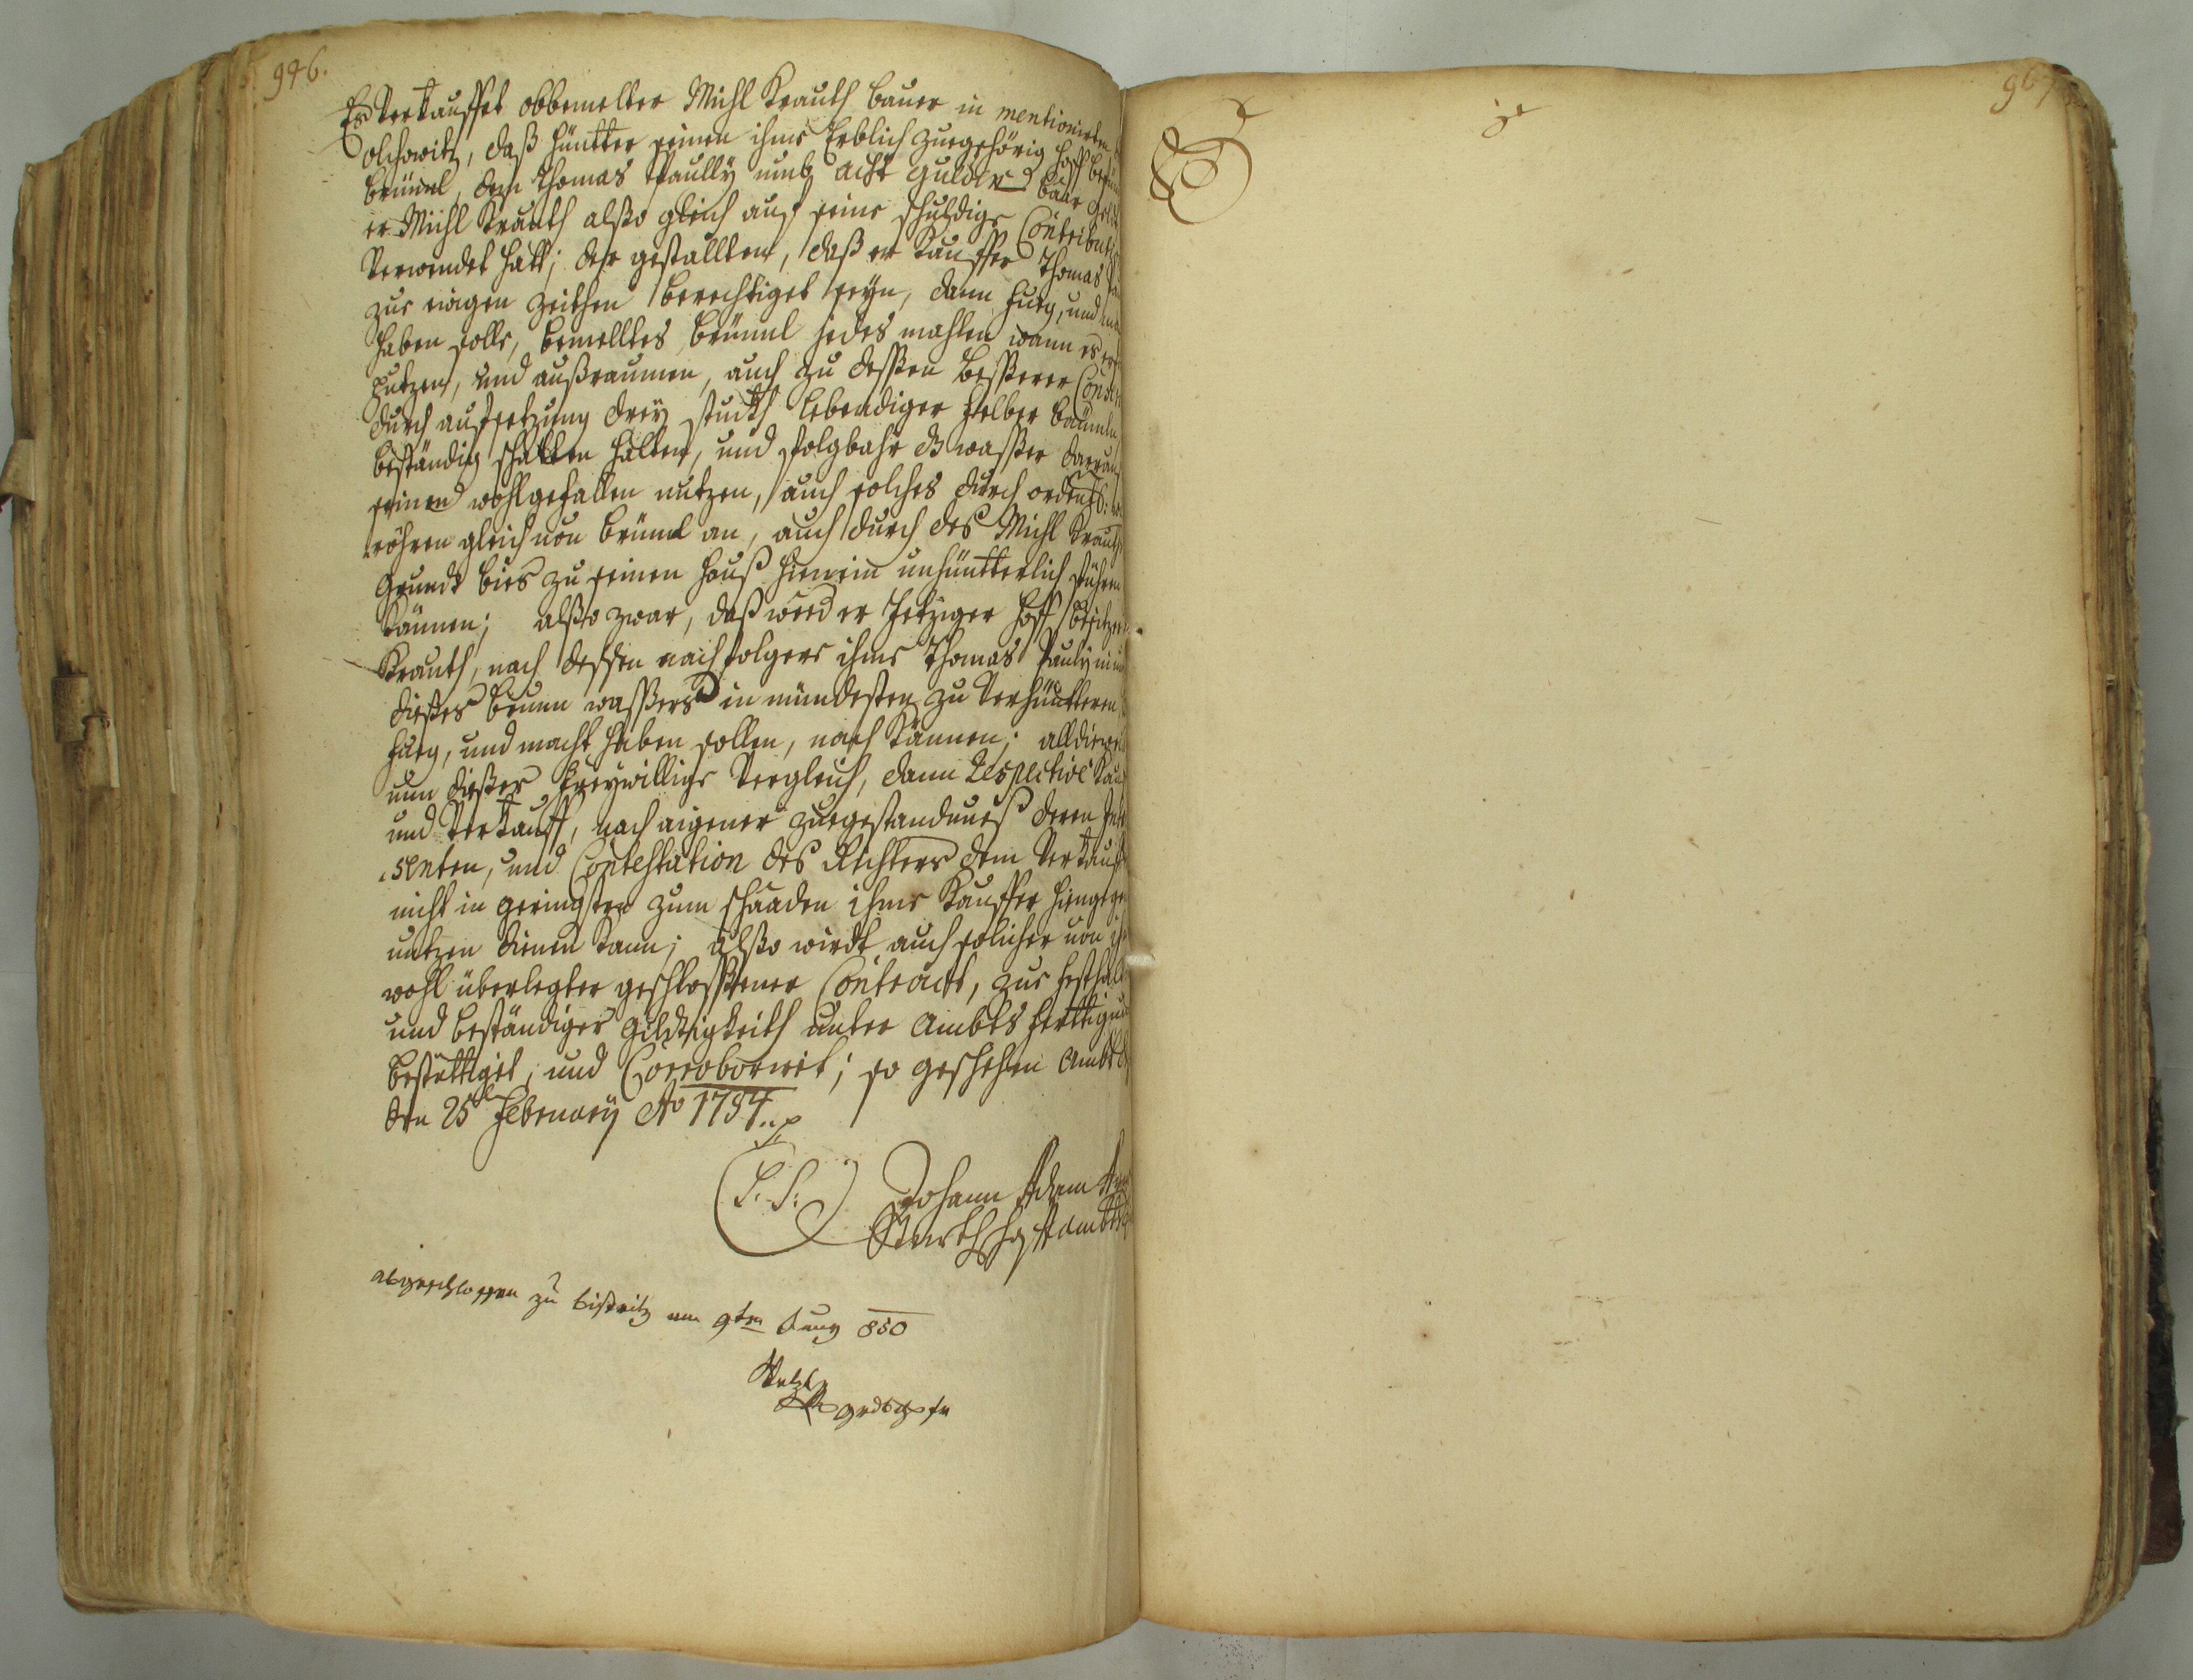 946.
Es verkauffet obbemelter Michl Krauth baurr in mentionirten
Olchowitz, daß hüntter seinen ihme Erblich zuegehörig hoff
brünnl, dem Thomas Paully umb acht gulden baar geldt
er Michl Krauth alßo gleich auf seine schuldige Contributi
verwendet hatt; der gestallten, daß er Kauffer Thomas
zue ewigen zeithen berechtiget seyn, dann fueg, und
haben solle, bemelltes brünnl jedes mahlen wann es
putzen, und außraumen, auch zu dessen besserer
durch aussetzung drey stuckh lebendiger felber bäumln
beständig schatten halten, und folgbahr dß wasser daraus
seinem wohlgefallen nutzen, auch solches durch ordentl:
röhren gleich von brünnl an, auch durch des Michl Krauth
grundt bies zu seinen hauß hienein unhüntterlich führen
können; alßo zwar, daß weed er jetziger hoff besitzer
Krauth, noch dessen nachfolgere ihme Thomas Pauly
dießes brunn wassers in mündesten zu verhünttern,
fueg, und macht haben sollen, noch können; alldieweil
nun dießer freywillige vergleich, dann Respective Kauf
und verkauff, nach aigener zuegestandnuß deren
senten, und Contestation des Richters dem verkauffer
nicht in geringsten zum schaaden ihme Kauffer hingegen
nutzen dienen kann; alßo wirdt auch solicher von
wohl überlegter geschlossener Contract, zur festhalt
und beständiger gildtigkeith unter Ambts fertigung
bestättiget, und Corroborirt; so geschehen Ambt
den 25t February Ao 1754.
(L. S.) Johann Adam
abgeschlossen zu bistritz am 9ten Juny 850
967